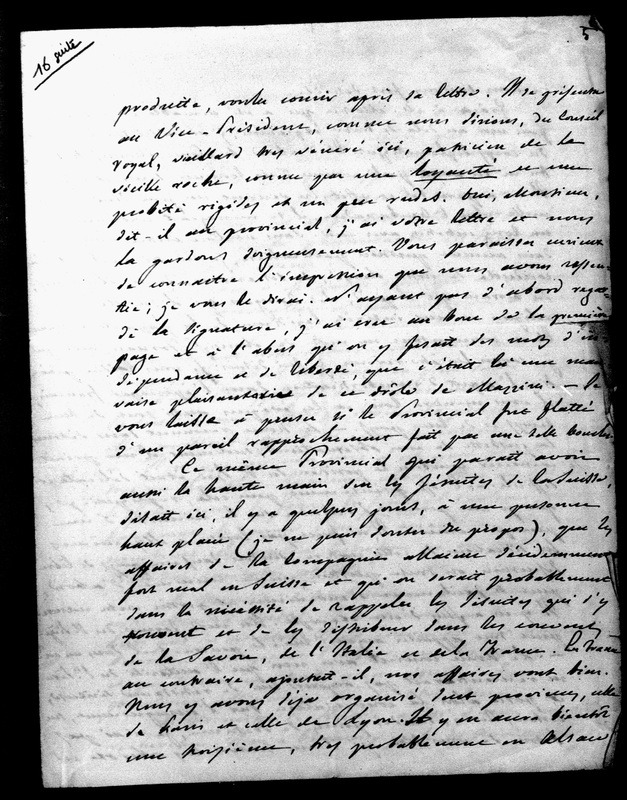 16 suite
5
produite, voulu courir après sa lettre. Il se présenta
au Vice-Président, comme nous disions, du Conseil
royal, vieillard très vénéré ici, patricien de la
vieille roche, connu par une loyauté et une
probité rigides et un peu rudes. Oui, Monsieur,
dit-il au provincial, j'ai votre lettre et nous
la gardons soigneusement. Vous paraissez curieux
de connaître l'impression que nous avons ressen-
tie; je vous le dirai. N'ayant pas d'abord regar-
dé la signature, j'ai cru au ton de la première
page et à l'abus qu'on y faisait des mots d'in-
dépendance et de liberté, que c'était là une mau-
vaise plaisanterie de ce drôle de Mazzini. — Je
vous laisse à penser si le Provincial fut flatté
d'un pareil rapprochement fait par une telle bouche.
Ce même Provincial qui parait avoir
aussi la haute main sur les Jésuites de la Suisse,
disait ici, il y a quelques jours, à une personne
haut placée (je ne puis douter du propos), que les
affaires de la Compagnie allaient décidemment
fort mal en Suisse et qu'on serait probablement
dans la nécessité de rappeler les Jésuites qui s'y
trouvent et de les distribuer dans les couvents
de la Savoie, de l'Italie et de la France. En France
au contraire, ajoutait-il, nos affaires vont bien.
Nous y avons déja organisé deux provinces, celle
de Paris et celle de Lyon. Il y en aura bientôt
une troisième, très probablement en Alsace